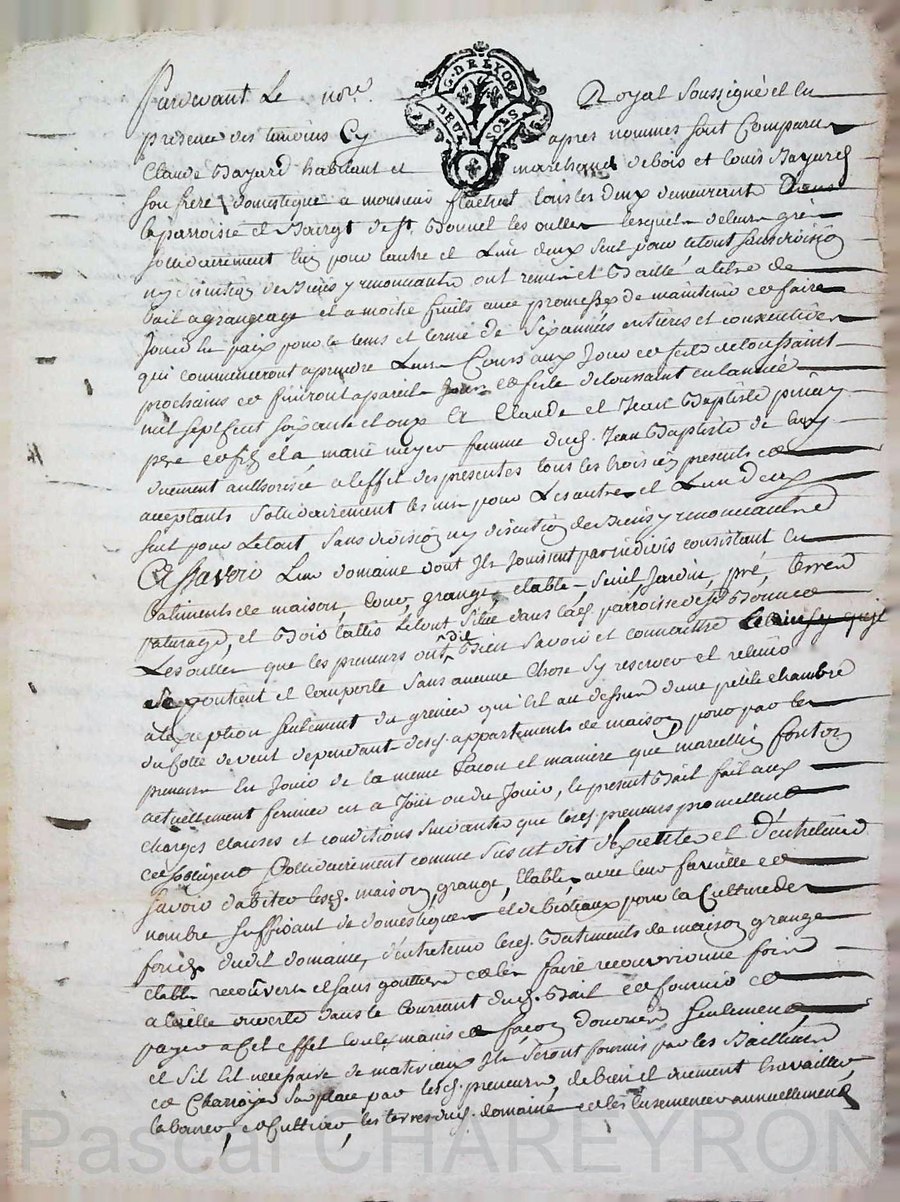 G. DE LYON
DEUX SOLS
Pardevant Le nore. Royal Soussigné et en
presence des temoins Cy apres nommes sont Comparu
Claude Bayard habitant et marchand de bois et Louis Bayard
son frere domestique a monsieur flachat tous les deux demeurant dans
la parroisse et Bourgt de st. Bonnet les oulles lesquels de leur gré
sollidairement l'un pour l'autre et L'un deux seul pour le tout sans division
ny discution de Biens y renoncants ont remis et Baillé a titre de
Bail a grangeage et a moitié fruits avec promesse de maintenir et faire
Jouir en paix pour le tems et terme de six années entieres et consecutives
qui commenceront a prendre Leurs Cours aux Jour et feste de toussaint
prochains et finiront a pareil Jour et feste de toussaint en l'année
mil sept cent soixante et onze a Claude et Jean Baptiste
pere et fils et a marie femme dud. Jean Baptiste de luy
duement authorisée a l'effet des presentes tous les trois icy presents et
acceptants sollidairement les uns pour Les autres et L'un d'eux
seul pour Le tout sans division ny discution de Biens y renoncants
Assavoir Leur domaine dont Ils Jouissent par indivis consistant en
Batiments de maison, Cour, grange, etable, Jardin, pré, terres
paturage, et Bois taillis Le tout situé dans lad. parroisse de st Bonnet
Les oulles que les preneurs ont dit Bien savoir et connaitre
contient et comporte sans aucune Chose s'y reserver et retenir
a l'exception seulement du grenier qui est au dessus d'une petite chambre
du cotté de vent dependant desd. appartements de maison pour par les
preneurs En Jouir de la meme facon et maniere que marcellin fonton
actuellement fermier en a Joüi ou du Jouir, le present Bail fait aux
charges clauses et conditions suivantes que lesd. preneurs promettent
et s'obligent sollidairement comme sus est dit d'executer et d'entretenir
savoir d'abiter lesd. maison, grange, Etables avec leur famille et
nombre suffisant de domestiques et de bestiaux pour la Culture des
fonds dudit domaine, d'entretenir lesd. Batiments de maison grange
etable recouverts et sans gouttiere et les faire recouvrir une fois
a taille ouverte dans le Courrant dud. Bail et fournir et
payer a Cet effet tous les manis et façon d'ouvriers seulement,
et s'il est necessaire de materiaux Ils seront fournis par les Bailleurs
et Charroyés sur place par lesd. preneurs, de bien et duement travailler
labourer, et Cultiver, les terres dud. domaine et les ensemencer annuellement
Pascal CHAREYRON